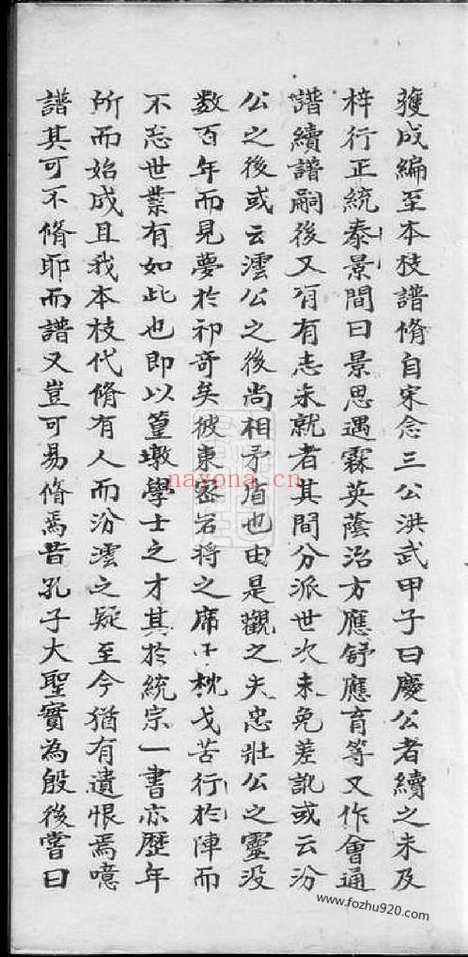 獲成編至本枝譜脩自宋念三公洪武甲子曰慶公者續之未及
梓行正統泰景間曰景思遇霖英蔭治方應舒應育等又作會通
譜續譜嗣後又有有志未就者其間分派世次未免差訛或云汾
公之後或云澐公之後尚相矛盾也由是觀之夫忠壯公之靈没
数百年而見夢於祁竒矣彼東密岩将之席枕戈苦行於陣而
不忘世業有如此也即以篁墩學士之才其於統宗一書亦歷年
所而始成且我本枝代脩有人而汾澐之疑至今猶有遺恨焉噫
譜其可不脩耶而譜又豈可易脩焉昔孔子大聖實為殷後嘗曰
nayona.cn
www.fozhu920.com